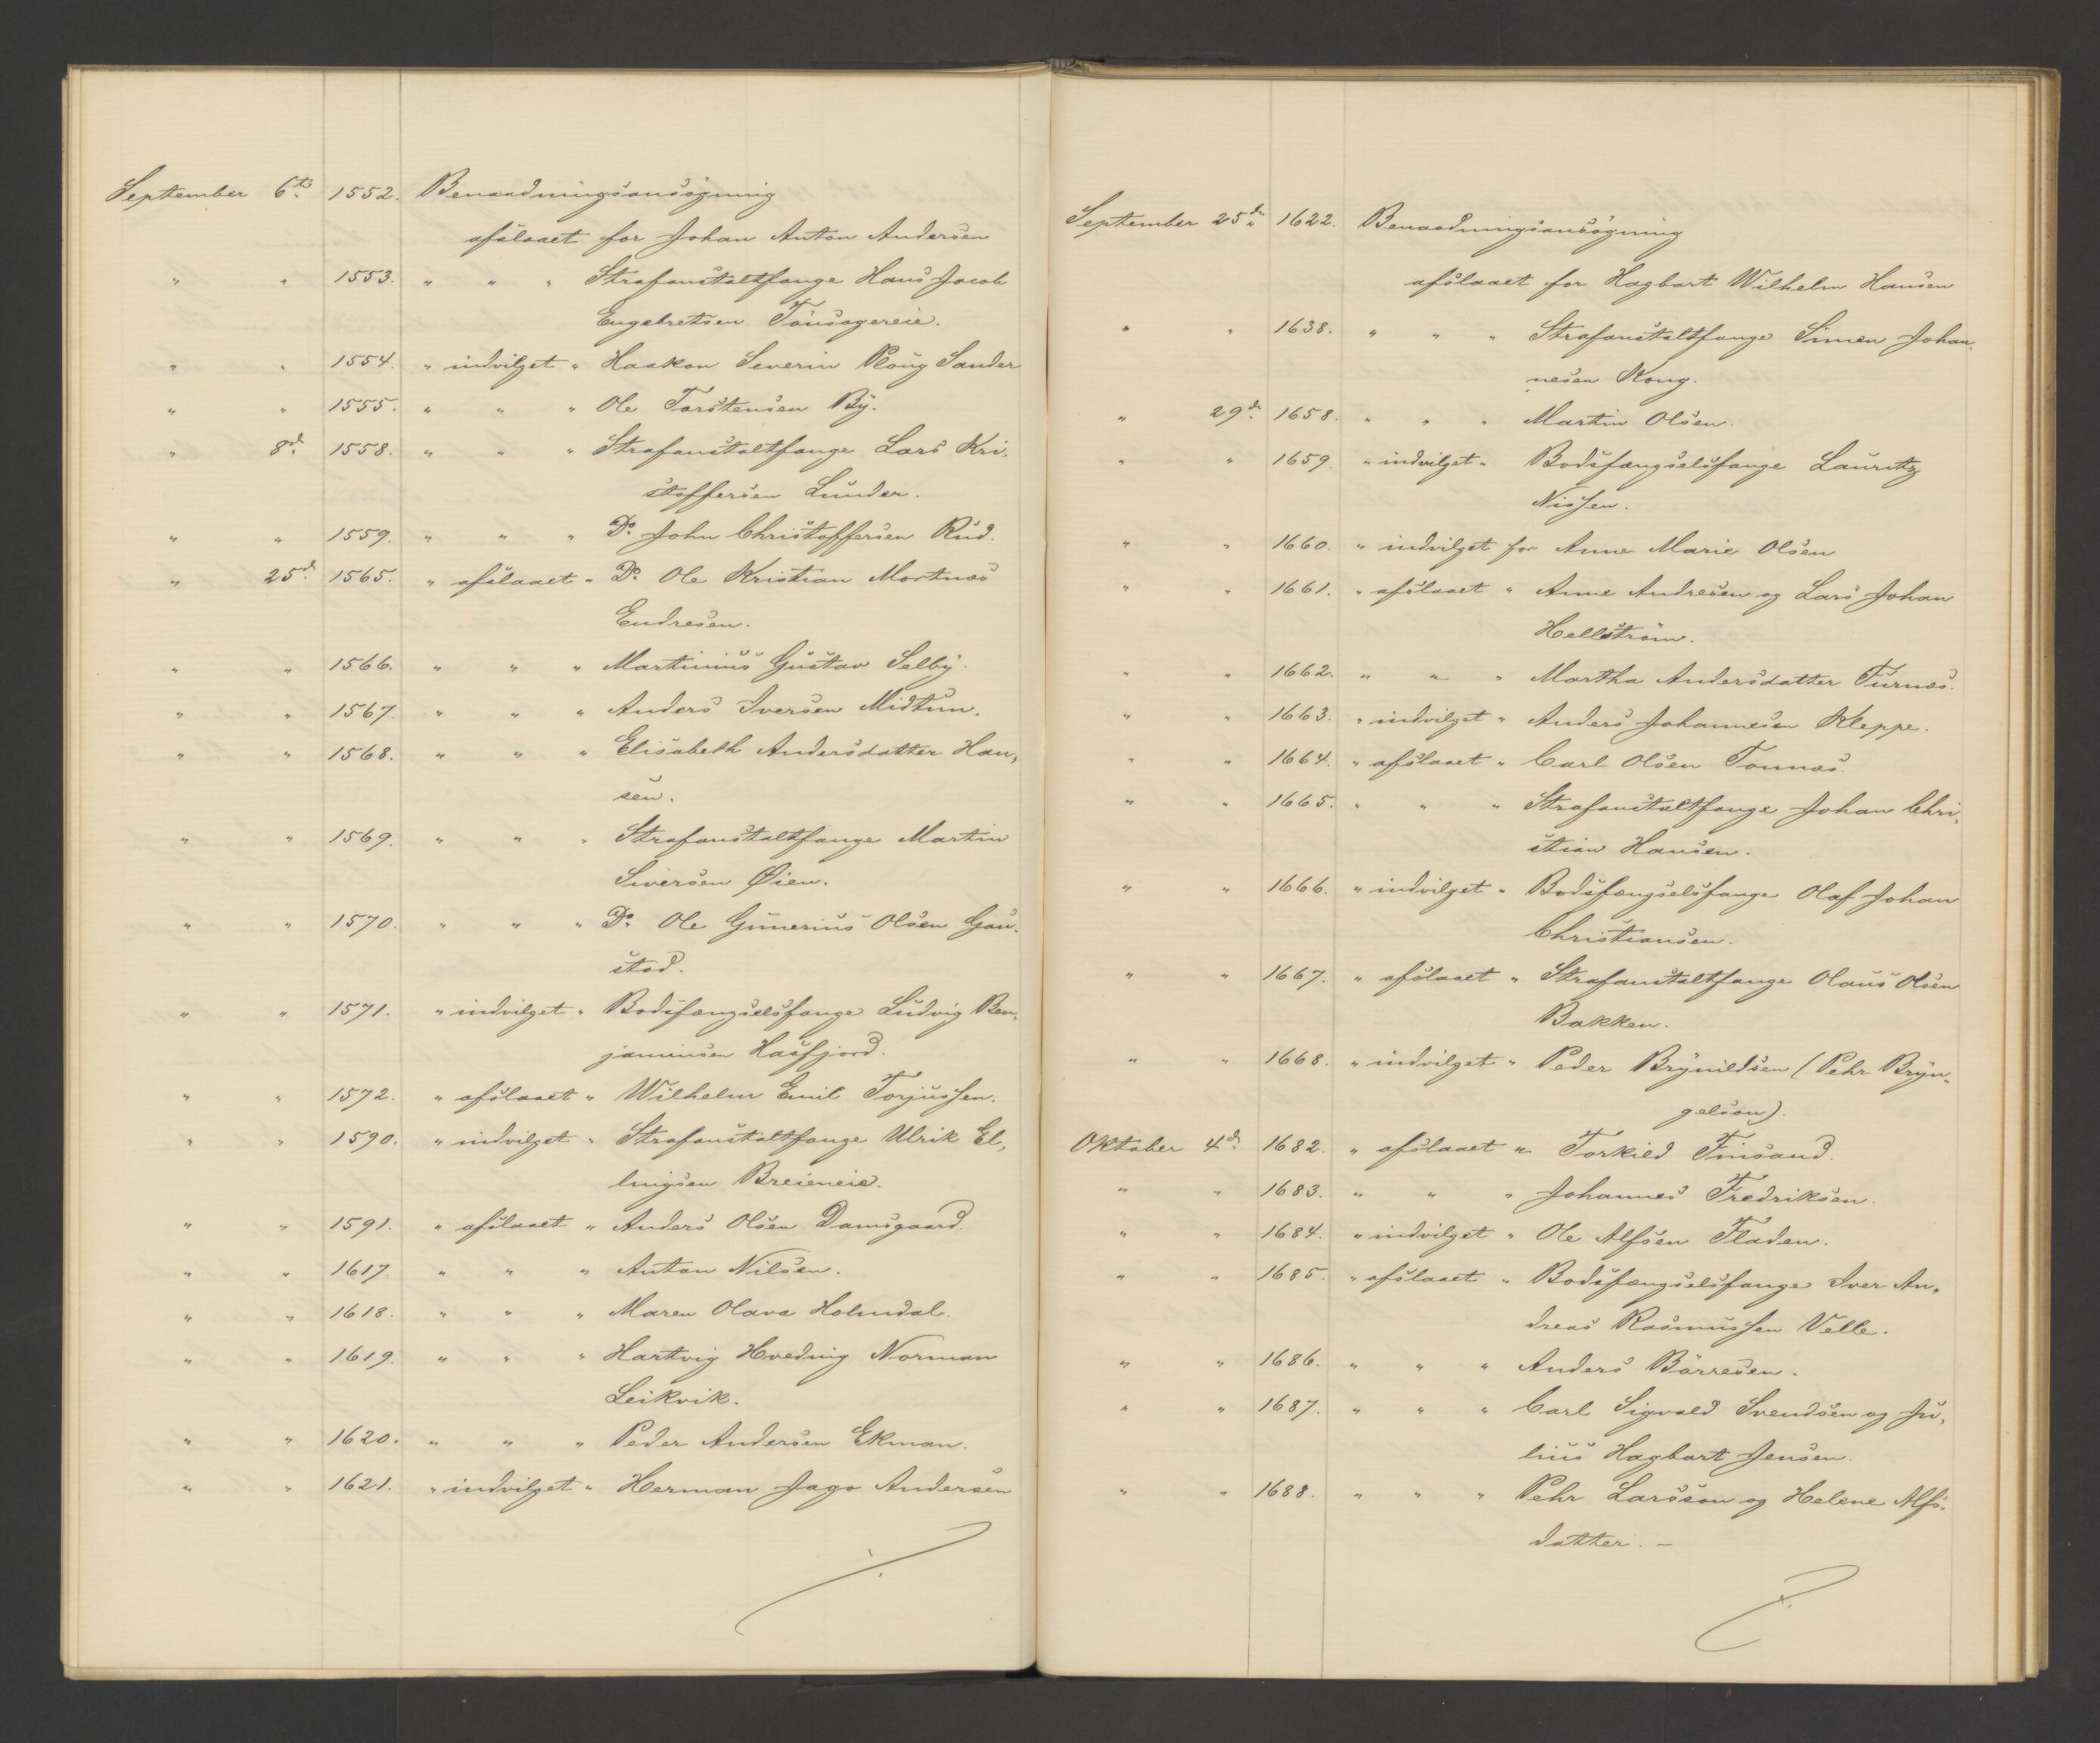 September 6te 1552. Benaadningsansögning
afslaaet for Johan Anton Andersen
" " 1553. " " " Strafanstaltfange Hans Jacob
Engebretsen Tönsagereie.
" " 1554. " indvilget " Haakon Severin Ploug Sander
" " 1555. " " " Ole Torstensen By.
" 8d. 1558. " " " Strafanstaltfange Lars Kri-
stoffersen Lunder.
" " 1559. " " " Do. John Christoffersen Rud.
" 25d. 1565. " afslaaet " Do. Ole Kristian Mortnæs
Endresen.
" " 1566. " " " Martinius Gustav Selby.
" " 1567. " " " Anders Iversen Midtun.
" " 1568. " " " Elisabeth Andersdatter Han-
sen.
" " 1569. " " " Strafanstaltfange Martin
Siversen Øien.
" " 1570. " " " Do. Ole Gunerius Olsen Gau-
stad.
" " 1571. " indvilget " Bodsfængselsfange Ludvig Ben-
jaminsen Hasfjord.
" " 1572. " afslaaet " Wilhelm Emil Torjussen.
" " 1590. " indvilget " Strafanstaltfange Ulrik El-
lingsen Breieneie.
" " 1591. " afslaaet " Anders Olsen Damsgaard.
" " 1617. " " " Anton Nilsen.
" " 1618. " " " Maren Olava Holmdal.
" " 1619. " " " Hartvig Hveding Norman
Leikvik.
" " 1620. " " " Peder Andersen Ekman.
" " 1621. " indvilget " Herman Jago Andersen
September 25d. 1622. Benaadningsansögning
afslaaet for Hagbart Wilhelm Hansen
" " 1638. " " " Strafanstaltfange Simen Johan-
nesen Kong.
" 29d. 1658. " " " Martin Olsen.
" " 1659. " indvilget " Bodsfængselsfange Lauritz
Nissen.
" " 1660. " indvilget for Anne Marie Olsen
" " 1661. " afslaaet " Anne Andresen og Lars Johan
Hellström.
" " 1662. " " " Martha Andersdatter Furnæs.
" " 1663. " indvilget " Anders Johannesen Kleppe.
" " 1664. " afslaaet " Carl Olsen Tonnæs.
" " 1665. " " " Strafanstaltfange Johan Chri-
stian Hansen.
" " 1666. " indvilget " Bodsfængselsfange Olaf Johan
Christiansen.
" " 1667. " afslaaet " Strafanstaltfange Olaus Olsen
Bakken.
" " 1668. " indvilget " Peder Brynildsen (Pehr Bryn-
gelson).
Oktober 4d. 1682. " afslaaet " Torkild Finsand.
" " 1683. " " " Johannes Fredriksen.
" " 1684. " indvilget " Ole Alfsen Fladen.
" " 1685. " afslaaet " Bodsfængselsfange Iver An-
dreas Rasmussen Velle.
" " 1686. " " " Anders Börresen.
" " 1687. " " " Carl Sigvald Svendsen og Ju-
lius Hagbart Jensen.
" " 1688. " " " Pehr Larsson og Helene Alfs-
datter. –